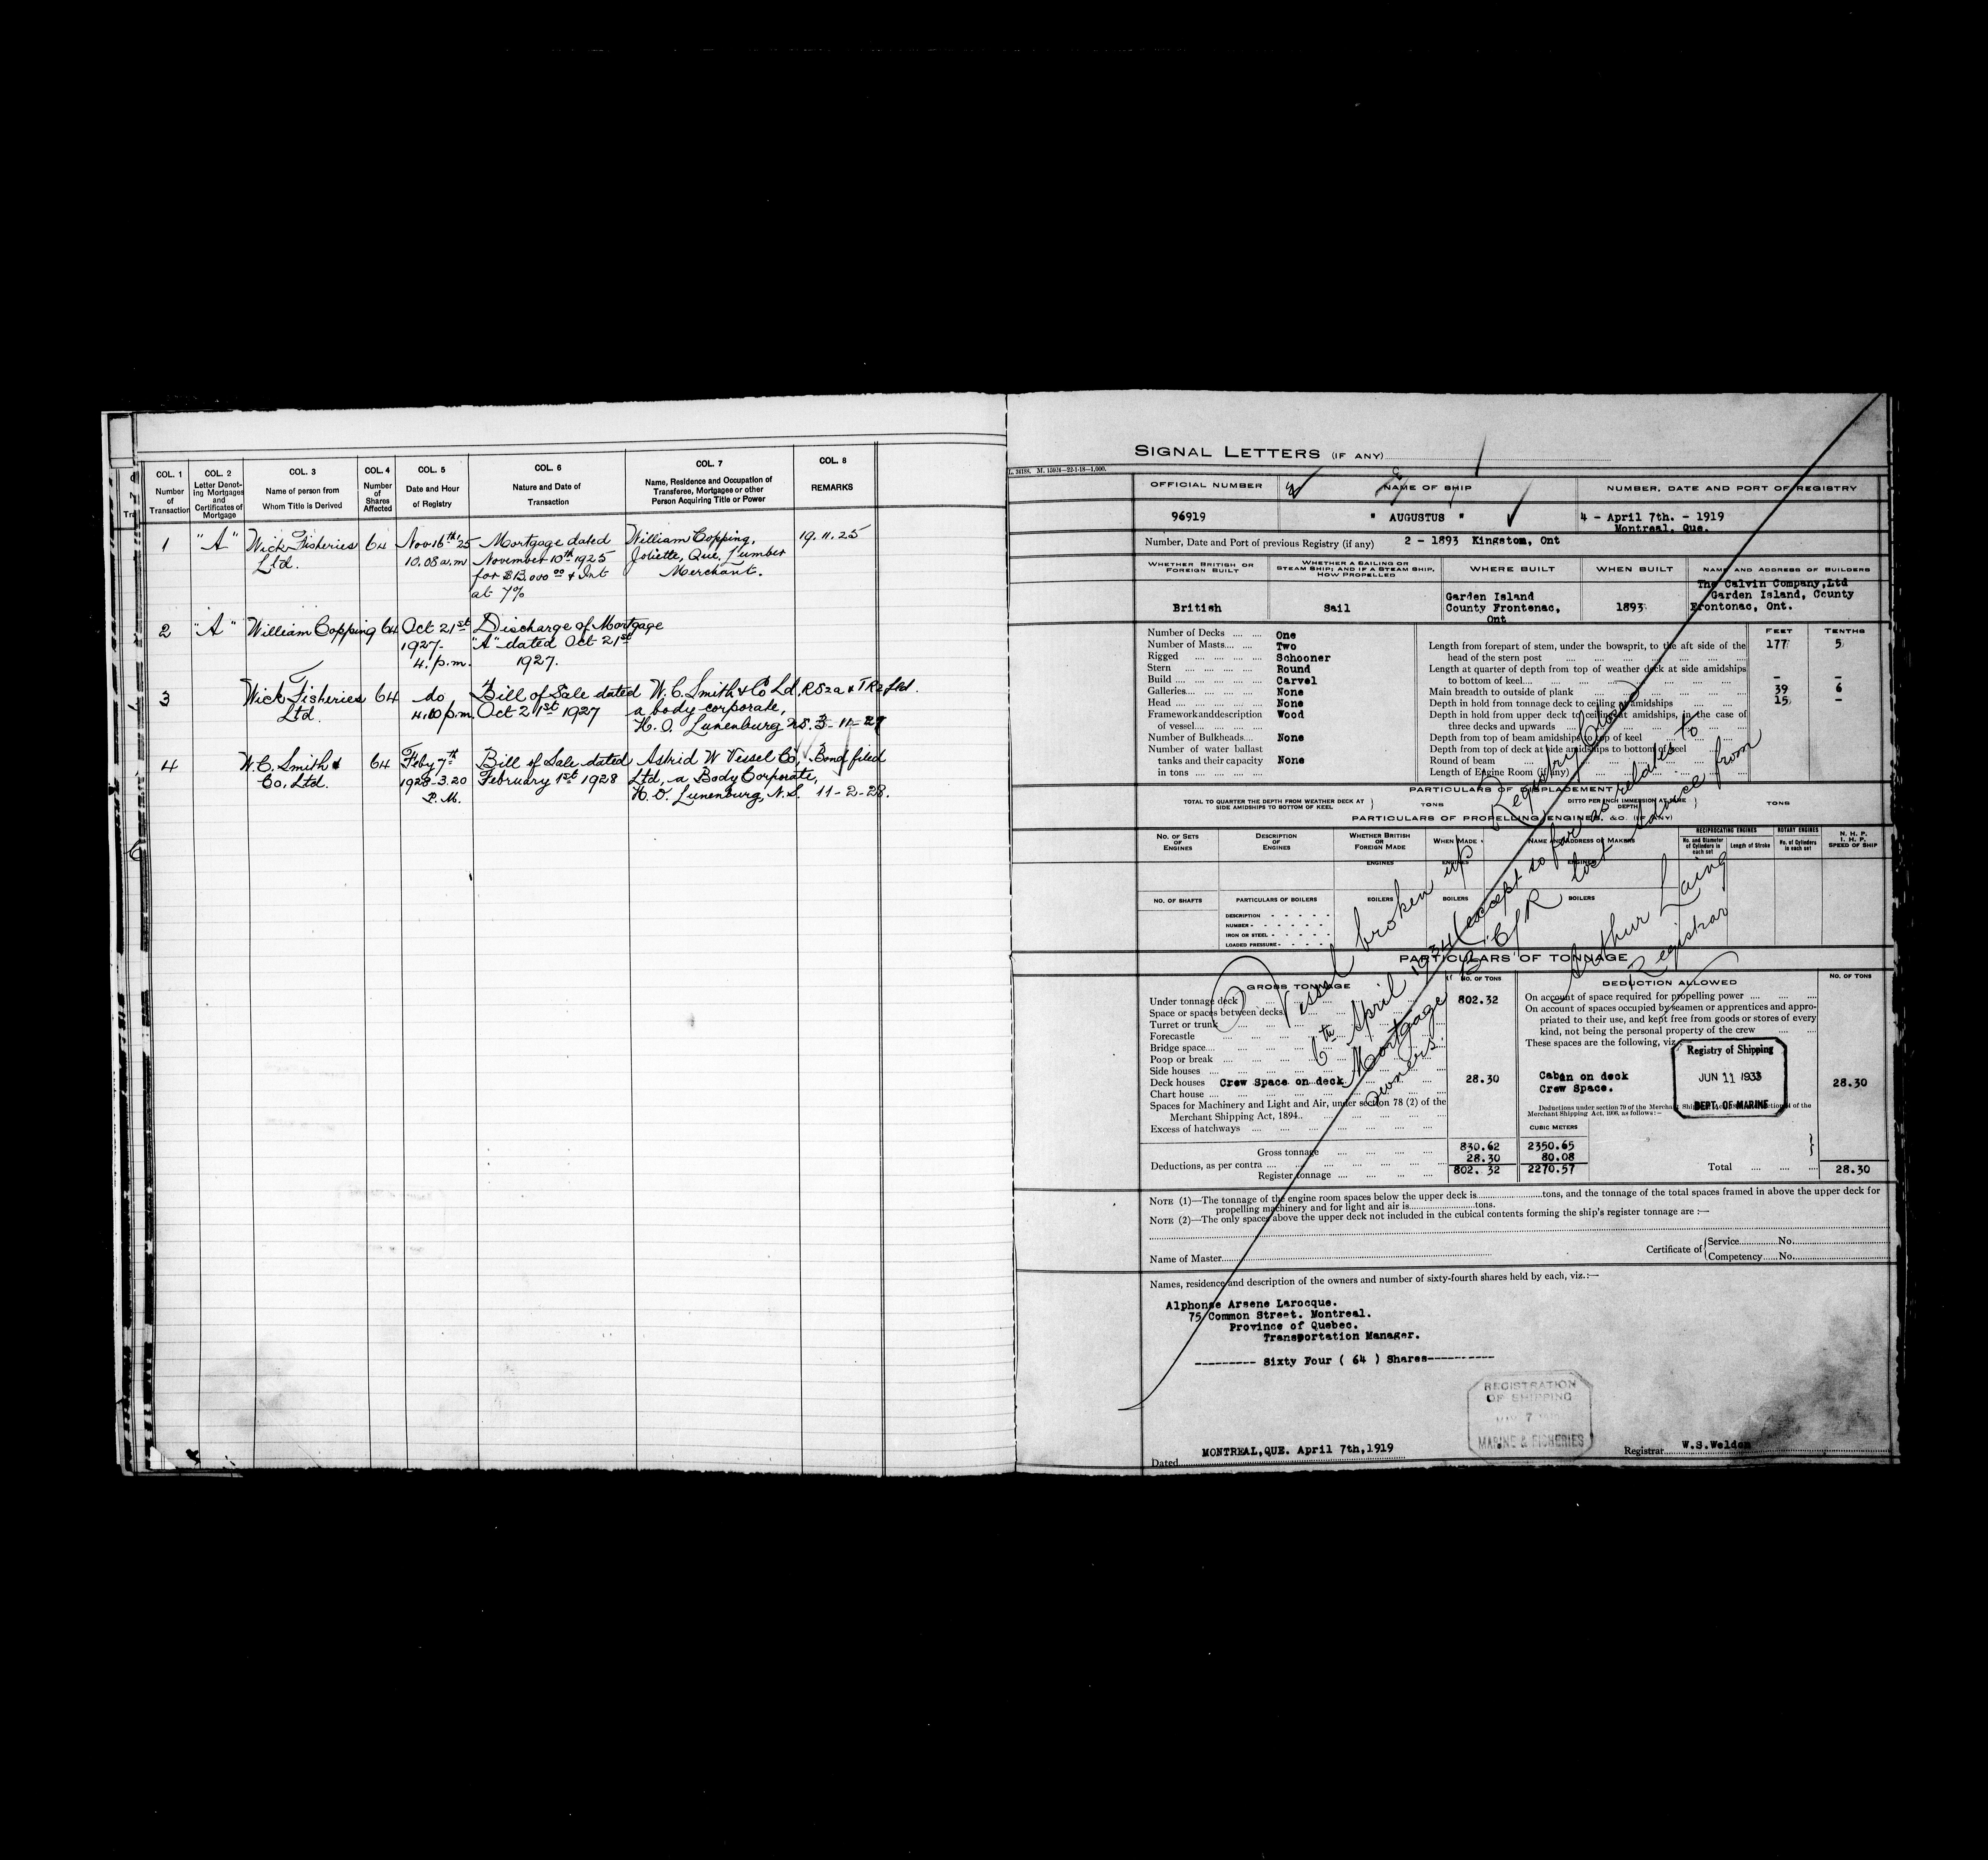 COL. 1
Number
of
Transaction
COL. 2
Letter Denot-
ing Mortgages
and
Certificates of
Mortgage
COL. 3
Name of person from
Whom Title is Derived
COL. 4
Number
of
Shares
Affected
COL. 5
Date and Hour
of Registry
COL. 6
Nature and Date of
Transaction
COL. 7
Name, Residence and Occupation of
Transferee, Mortgages or other
Person Acquiring Title or Power
COL. 8
REMARKS
1 "A" Wick Fisheries 64 Nov 16th '25 Mortgage dated William Copping, 19.11.25
Ltd. 10.08 a.m November 10th 1925 Joliette, Que, Lumber
for $13,000 00 & Int Merchant.
at 7%
2 "A" William Copping 64 Oct 21st Discharge of Mortgage
1927. "A" dated Oct 21st
4. p.m. 1927.
3 Wick Fisheries 64 do Bill of Sale dated W. C. Smith & Co Ld, RS2a & TR2 fld.
Ltd. 4.00 p.m. Oct 21st 1927 a body corporate,
H. O. Lunenburg N.S. 3-11-27
4 W. C. Smith & 64 Feby 7th Bill of Sale dated Astrid W Vessel Co, Bond filed
Co, Ltd. 1928-3.20 February 1st 1928 Ltd, a Body Corporate,
P.M. H. O. Lunenburg, N.S. 11-2-28.
SIGNAL LETTERS (IF ANY)
L. 36188. M. 15924—22-1-18—1,000.
OFFICIAL NUMBER NAME OF SHIP NUMBER, DATE AND PORT OF REGISTRY
96919 " AUGUSTUS " 4 - April 7th. - 1919
Montreal. Que.
Number, Date and Port of previous Registry (if any) 2 - 1893 Kingstom, Ont
WHETHER BRITISH OR
FOREIGN BUILT
WHETHER A SAILING OR
STEAM SHIP; AND IF A STEAM SHIP,
HOW PROPELLED
WHERE BUILT
WHEN BUILT
NAME AND ADDRESS OF BUILDERS
British
Sail
Garden Island
County Frontenac,
Ont
1893
The Calvin Company,Ltd
Garden Island, County
Frontonac, Ont.
Number of Decks One
Number of Masts Two
Rigged Schooner
Stern Round
Build Carvel
Galleries None
Head None
Framework and description Wood
of vessel
Number of Bulkheads None
Number of water ballast
tanks and their capacity None
in tons
FEET TENTHS
Length from forepart of stem, under the bowsprit, to the aft side of the 177 5
head of the stern post
Length at quarter of depth from top of weather deck at side amidships
to bottom of keel - -
Main breadth to outside of plank 39 6
Depth in hold from tonnage deck to ceiling at amidships 15 -
Depth in hold from upper deck to ceiling at amidships, in the case of
three decks and upwards
Depth from top of beam amidships to top of keel
Depth from top of deck at side amidships to bottom of keel
Round of beam
Length of Engine Room (if any)
PARTICULARS OF DISPLACEMENT
TOTAL TO QUARTER THE DEPTH FROM WEATHER DECK AT
SIDE AMIDSHIPS TO BOTTOM OF KEEL } TONS
DITTO PER INCH IMMERSION AT SAME
DEPTH } TONS
PARTICULARS OF PROPELLING ENGINES, &C. (IF ANY)
No. OF SETS
OF
ENGINES
DESCRIPTION
OF
ENGINES
WHETHER BRITISH
OR
FOREIGN MADE
WHEN MADE
NAME AND ADDRESS OF MAKERS
RECIPROCATING ENGINES
No. and Diameter
of Cylinders in
each set
Length of Stroke
ROTARY ENGINES
No. of Cylinders
in each set
N. H. P.
I. H. P.
SPEED OF SHIP
ENGINES ENGINES ENGINES
NO. OF SHAFTS PARTICULARS OF BOILERS BOILERS BOILERS BOILERS
DESCRIPTION
NUMBER
IRON OR STEEL
LOADED PRESSURE
Vessel broken up Registry closed
6th April 1934 (except so far as relates to
Mortgage "B" C/R lost advice from
owners.
Arthur Laing
Registrar
PARTICULARS OF TONNAGE
GROSS TONNAGE NO. OF TONS
Under tonnage deck 802.32
Space or spaces between decks
Turret or trunk
Forecastle
Bridge space
Poop or break
Side houses
Deck houses Crew Space on deck 28.30
Chart house
Spaces for Machinery and Light and Air, under section 78 (2) of the
Merchant Shipping Act, 1894
Excess of hatchways
Gross tonnage 830.62 2350.65
Deductions, as per contra 28.30 80.08
Register tonnage 802.32 2270.57
DEDUCTION ALLOWED NO. OF TONS
On account of space required for propelling power
On account of spaces occupied by seamen or apprentices and appro-
priated to their use, and kept free from goods or stores of every
kind, not being the personal property of the crew
These spaces are the following, viz
Cabin on deck
Crew Space. 28.30
Registry of Shipping
JUN 11 1933
DEPT. OF MARINE
Deductions under section 79 of the Merchant
Merchant Shipping Act, 1906, as follows:—
CUBIC METERS
Total 28.30
NOTE (1)—The tonnage of the engine room spaces below the upper deck is tons, and the tonnage of the total spaces framed in above the upper deck for
propelling machinery and for light and air is tons.
NOTE (2)—The only spaces above the upper deck not included in the cubical contents forming the ship's register tonnage are :—
Name of Master
Certificate of { Service No.
Competency No.
Names, residence and description of the owners and number of sixty-fourth shares held by each, viz.:—
Alphonse Arsene Larocque.
75 Common Street. Montreal.
Province of Quebec.
Transportation Manager.
--------- Sixty Four ( 64 ) Shares----------
REGISTRATION
OF SHIPPING
7
MARINE & FISHERIES
Dated MONTREAL,QUE. April 7th,1919
Registrar W.S.Weldon